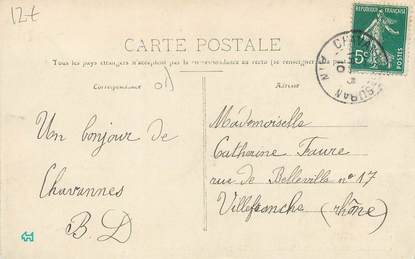 12+
RÉPUBLIQUE FRANÇAISE
5c
CARTE POSTALE
Tous les pays étrangers n'acceptent pas la correspondance au recto (se renseigner
Correspondance
01
Adresse
Un bonjour de
Chavannes
B. D
Mademoiselle
Catherine Faure
rue de Belleville n° 17
Villefranche (rhône)
SURAN